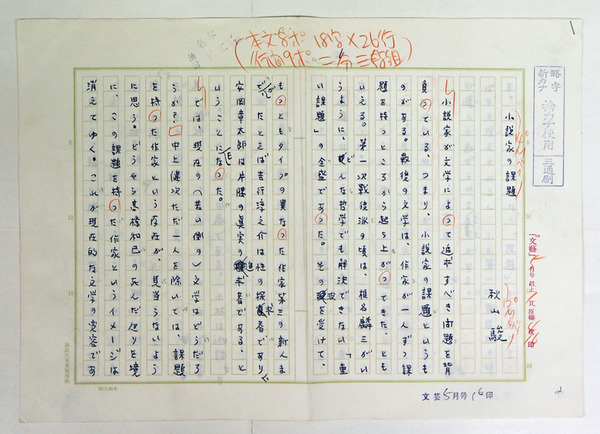 1
(本文8ポ 18字×26行
行間9ポ 二分 三段組)
略字
新カナ
三通刷
小説家の課題
秋山駿
小説家が文学によって追求すべき問題を背
負っている、つまり、小説家の課題というも
のがある。戦後の文学は、作家が一人ずつ課
題を持つところから起ち上がってきた、とも
いえる。第一次戦後派の頃は、椎名麟三がい
うように、どんな哲学でも解決できない「重
い課題」の全盛であった。その後を受けて、
もっともタイプの異なった作家第三の新人ま
で、たとえば吉行淳之介は性の探求者であり
安岡章太郎は片腰の真実の追求者である、と
いうことになった。
では、現在の(若い側の)文学はどうだろ
うか? 中上健次ただ一人を除いては、課題
を持った作家という存在が、見当らないよう
に思う。どうやら高橋和巳の死んだ辺りを境
に、この課題を持った作家というイメージは
消えてゆく。これが現在的な文学の実容であ
文芸5月号 印
2